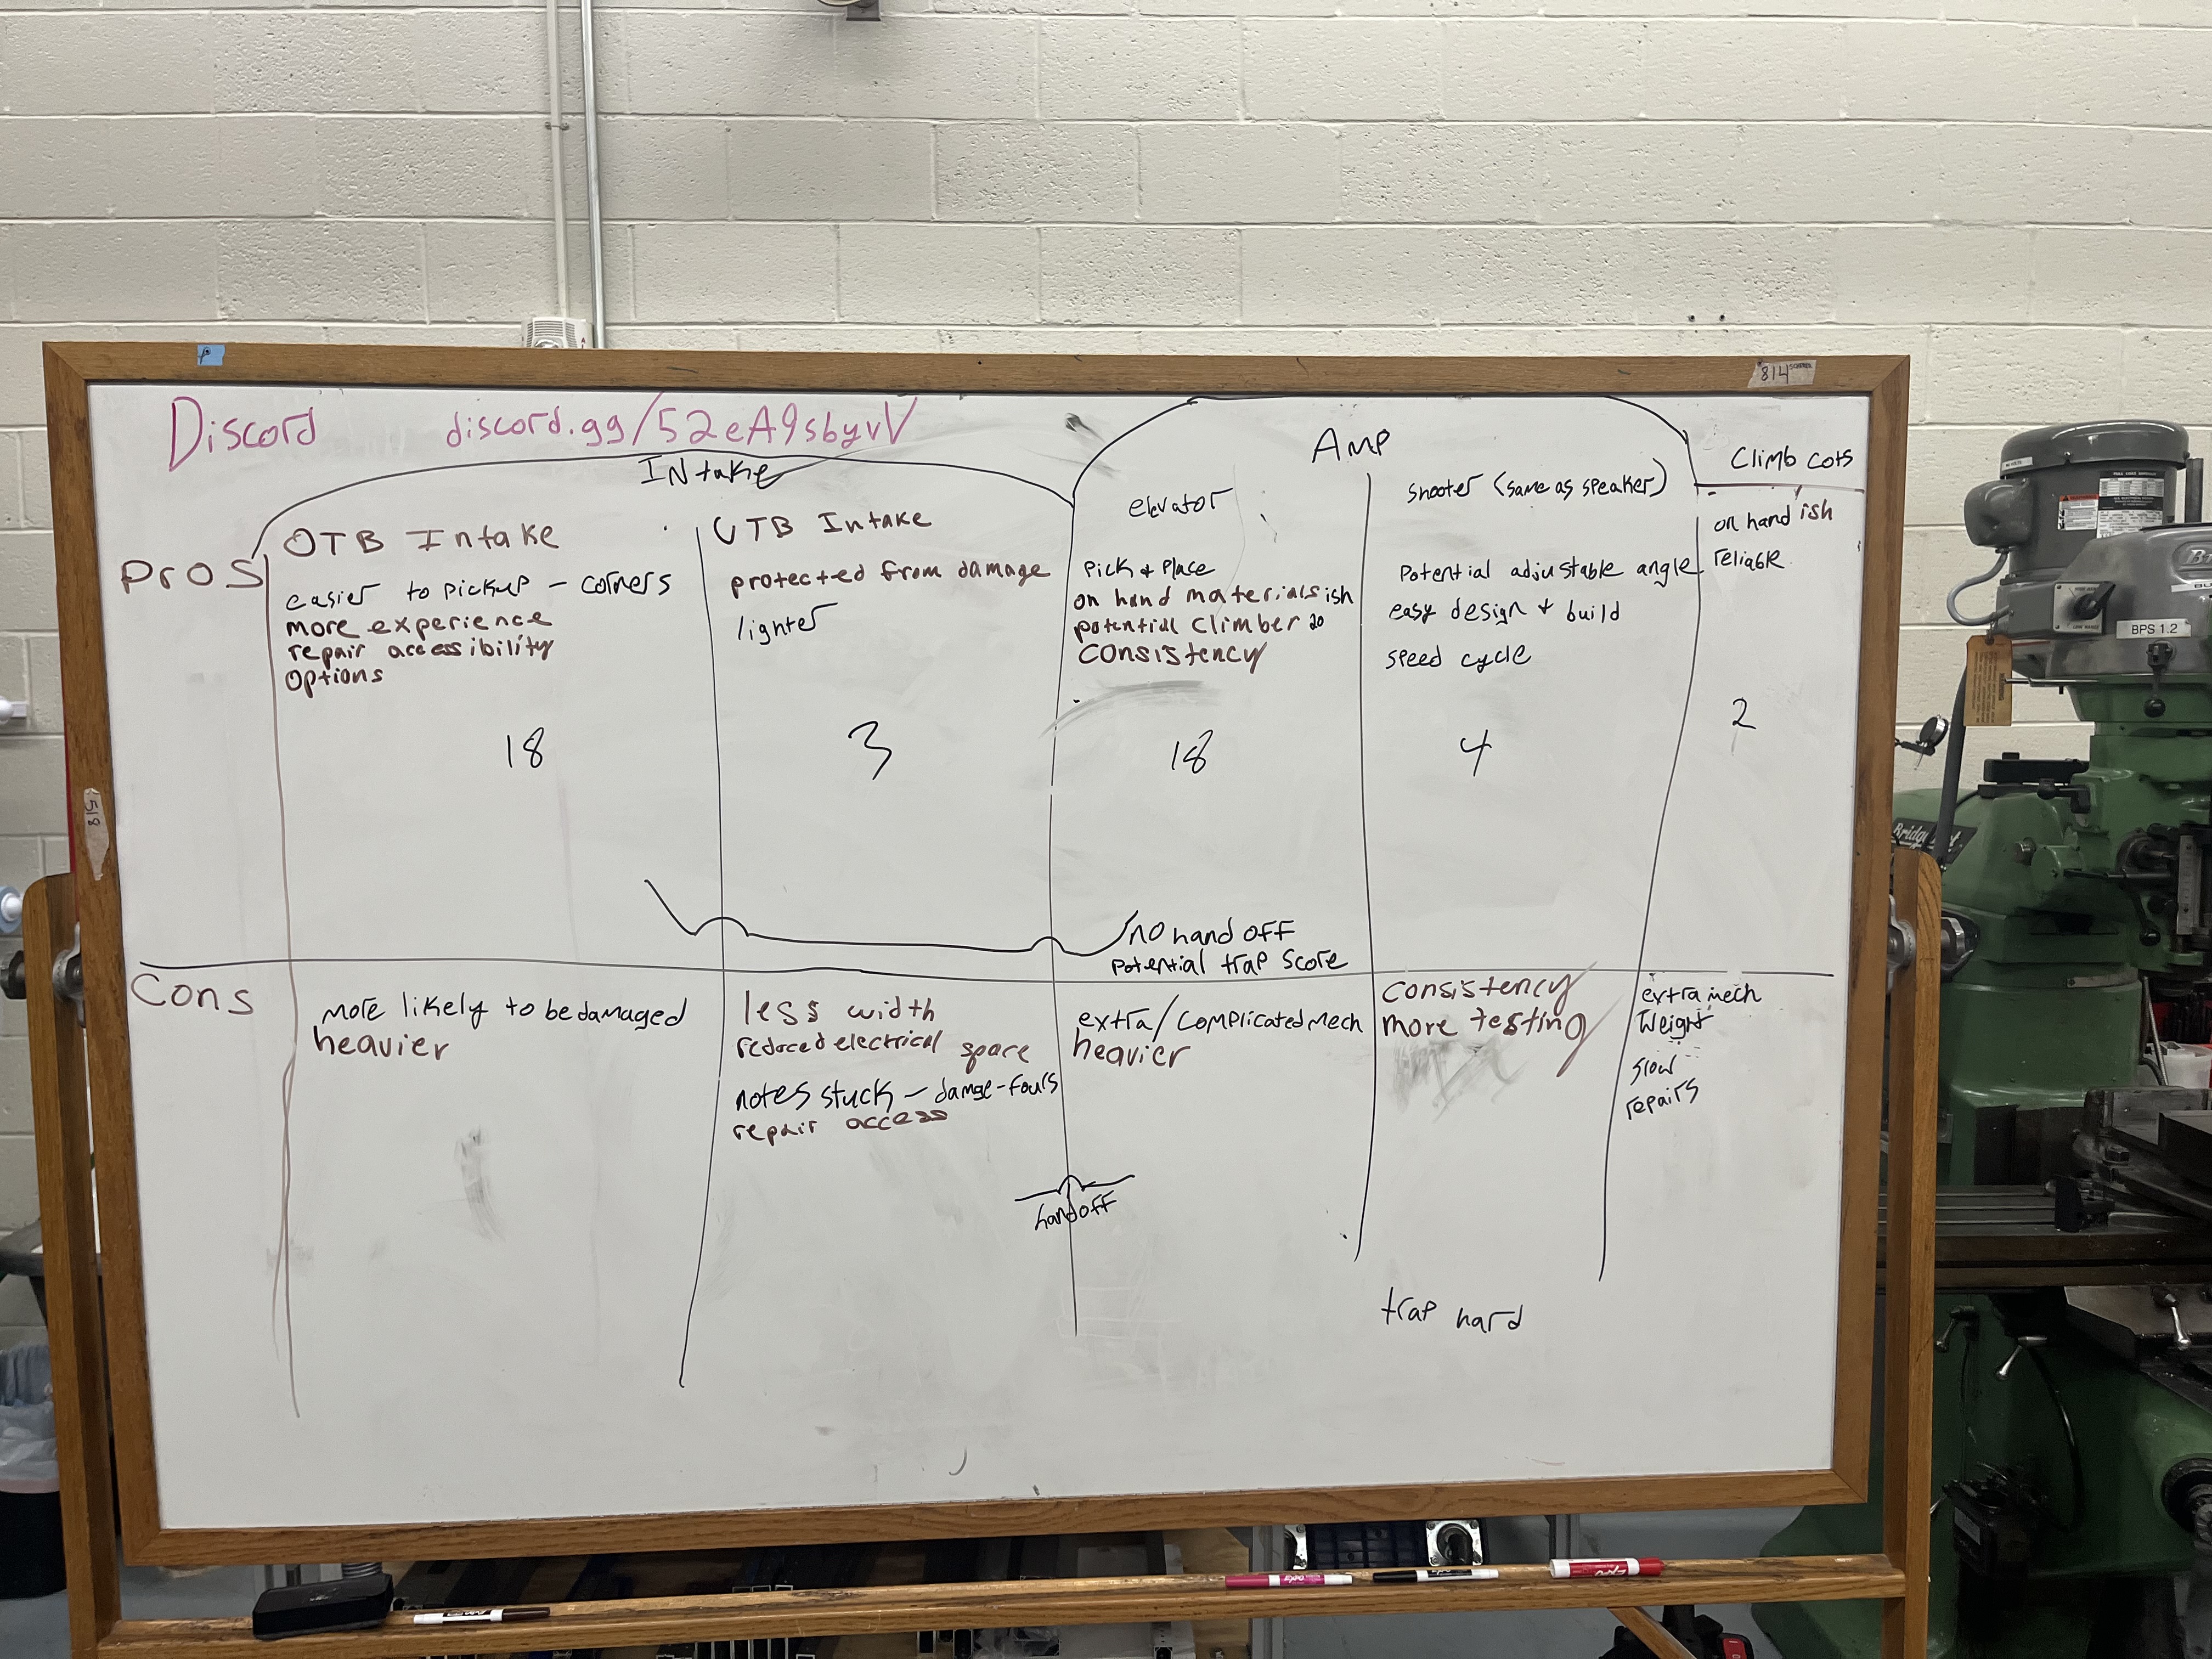 814
Discord discord.gg/52eA9sbyvV
INtake
Amp
Climb cots
OTB Intake
UTB Intake
elevator
shooter (same as speaker)
Pros
easier to pickup - corners
more experience
repair accessibility
options
18
protected from damage
lighter
3
Pick + Place
on hand materials ish
potential climber
consistency
18
Potential adjustable angle
easy design + build
speed cycle
4
on hand ish
reliable
2
no hand off
Potential trap score
Cons
more likely to be damaged
heavier
less width
reduced electrical space
notes stuck - damge-fouls
repair access
extra/complicated mech
heavier
handoff
consistency
more testing
trap hard
extra mech
Weight
slow
repairs
518
BPS 1.2
EXPO